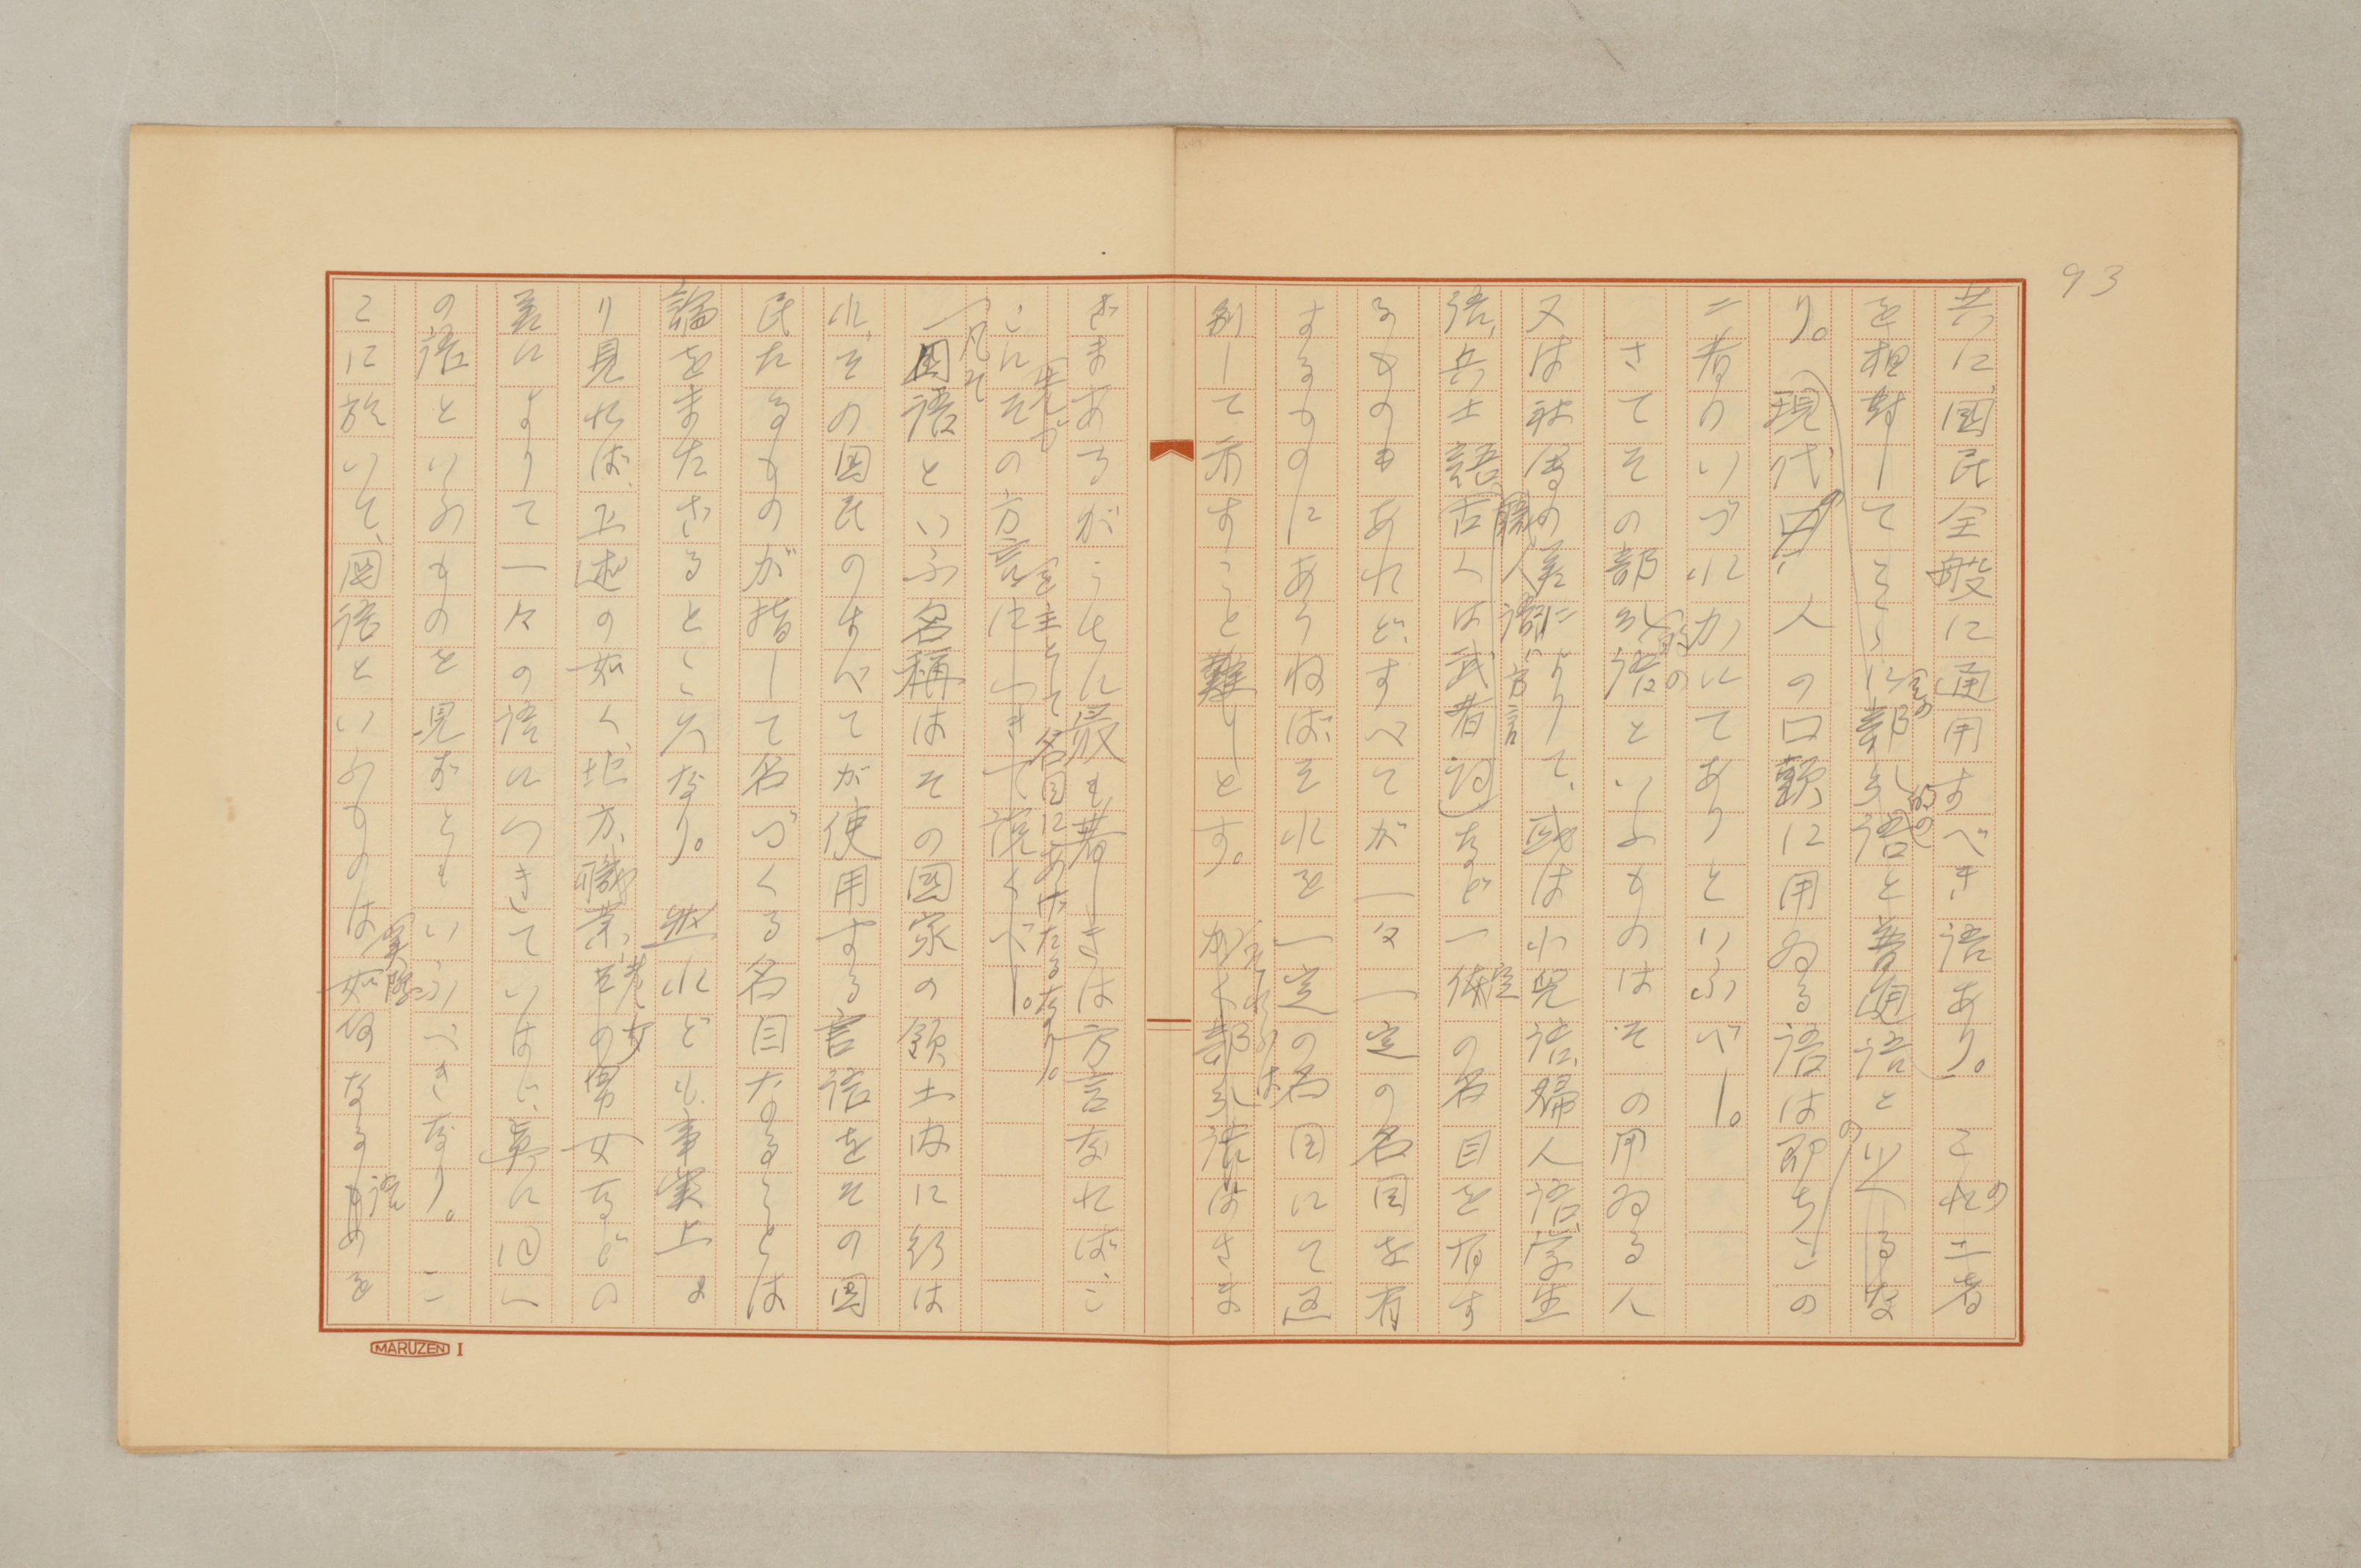 93
共に、国民全般に通用すべき語あり。この二者
を相対してこゝに部分的の語と普通語といへるな
り。現代の人の口頭に用ゐる語は即ちこの
二者のいづれかにてありといふべし。
さてその部分的の語といふものはその用ゐる人
又は社会の差によりて、或は小児語、婦人語、学生
語、兵士語、職人語、方言古くは武者詞など一定の名目を有す
るものもあれど、すべてが一々一定の名目を有
するものにあらねばそれを一定の名目にて区
別して示すこと難しとす。かく部分語はさま
ざまあるがうちに最も著しきは方言なればこ
こに先づその方言につきて説くべし。
を主として名目にあげたるなり。
凡そ国語といふ名称はその国家の領土内に行は
れ、その国民のすべてが使用する言語をその国
民たるものが指して名づくる名目なることは
論をまたざるところなり。然れども、事実上よ
り見れば、上述の如く、地方、職業、老若男女などの
差によりて一々の語につきていはゞ、真に同一
の語といふものを見ずともいふべきなり。こ
こに於いて、国語といふものは実際如何なる語を
MARUZEN I